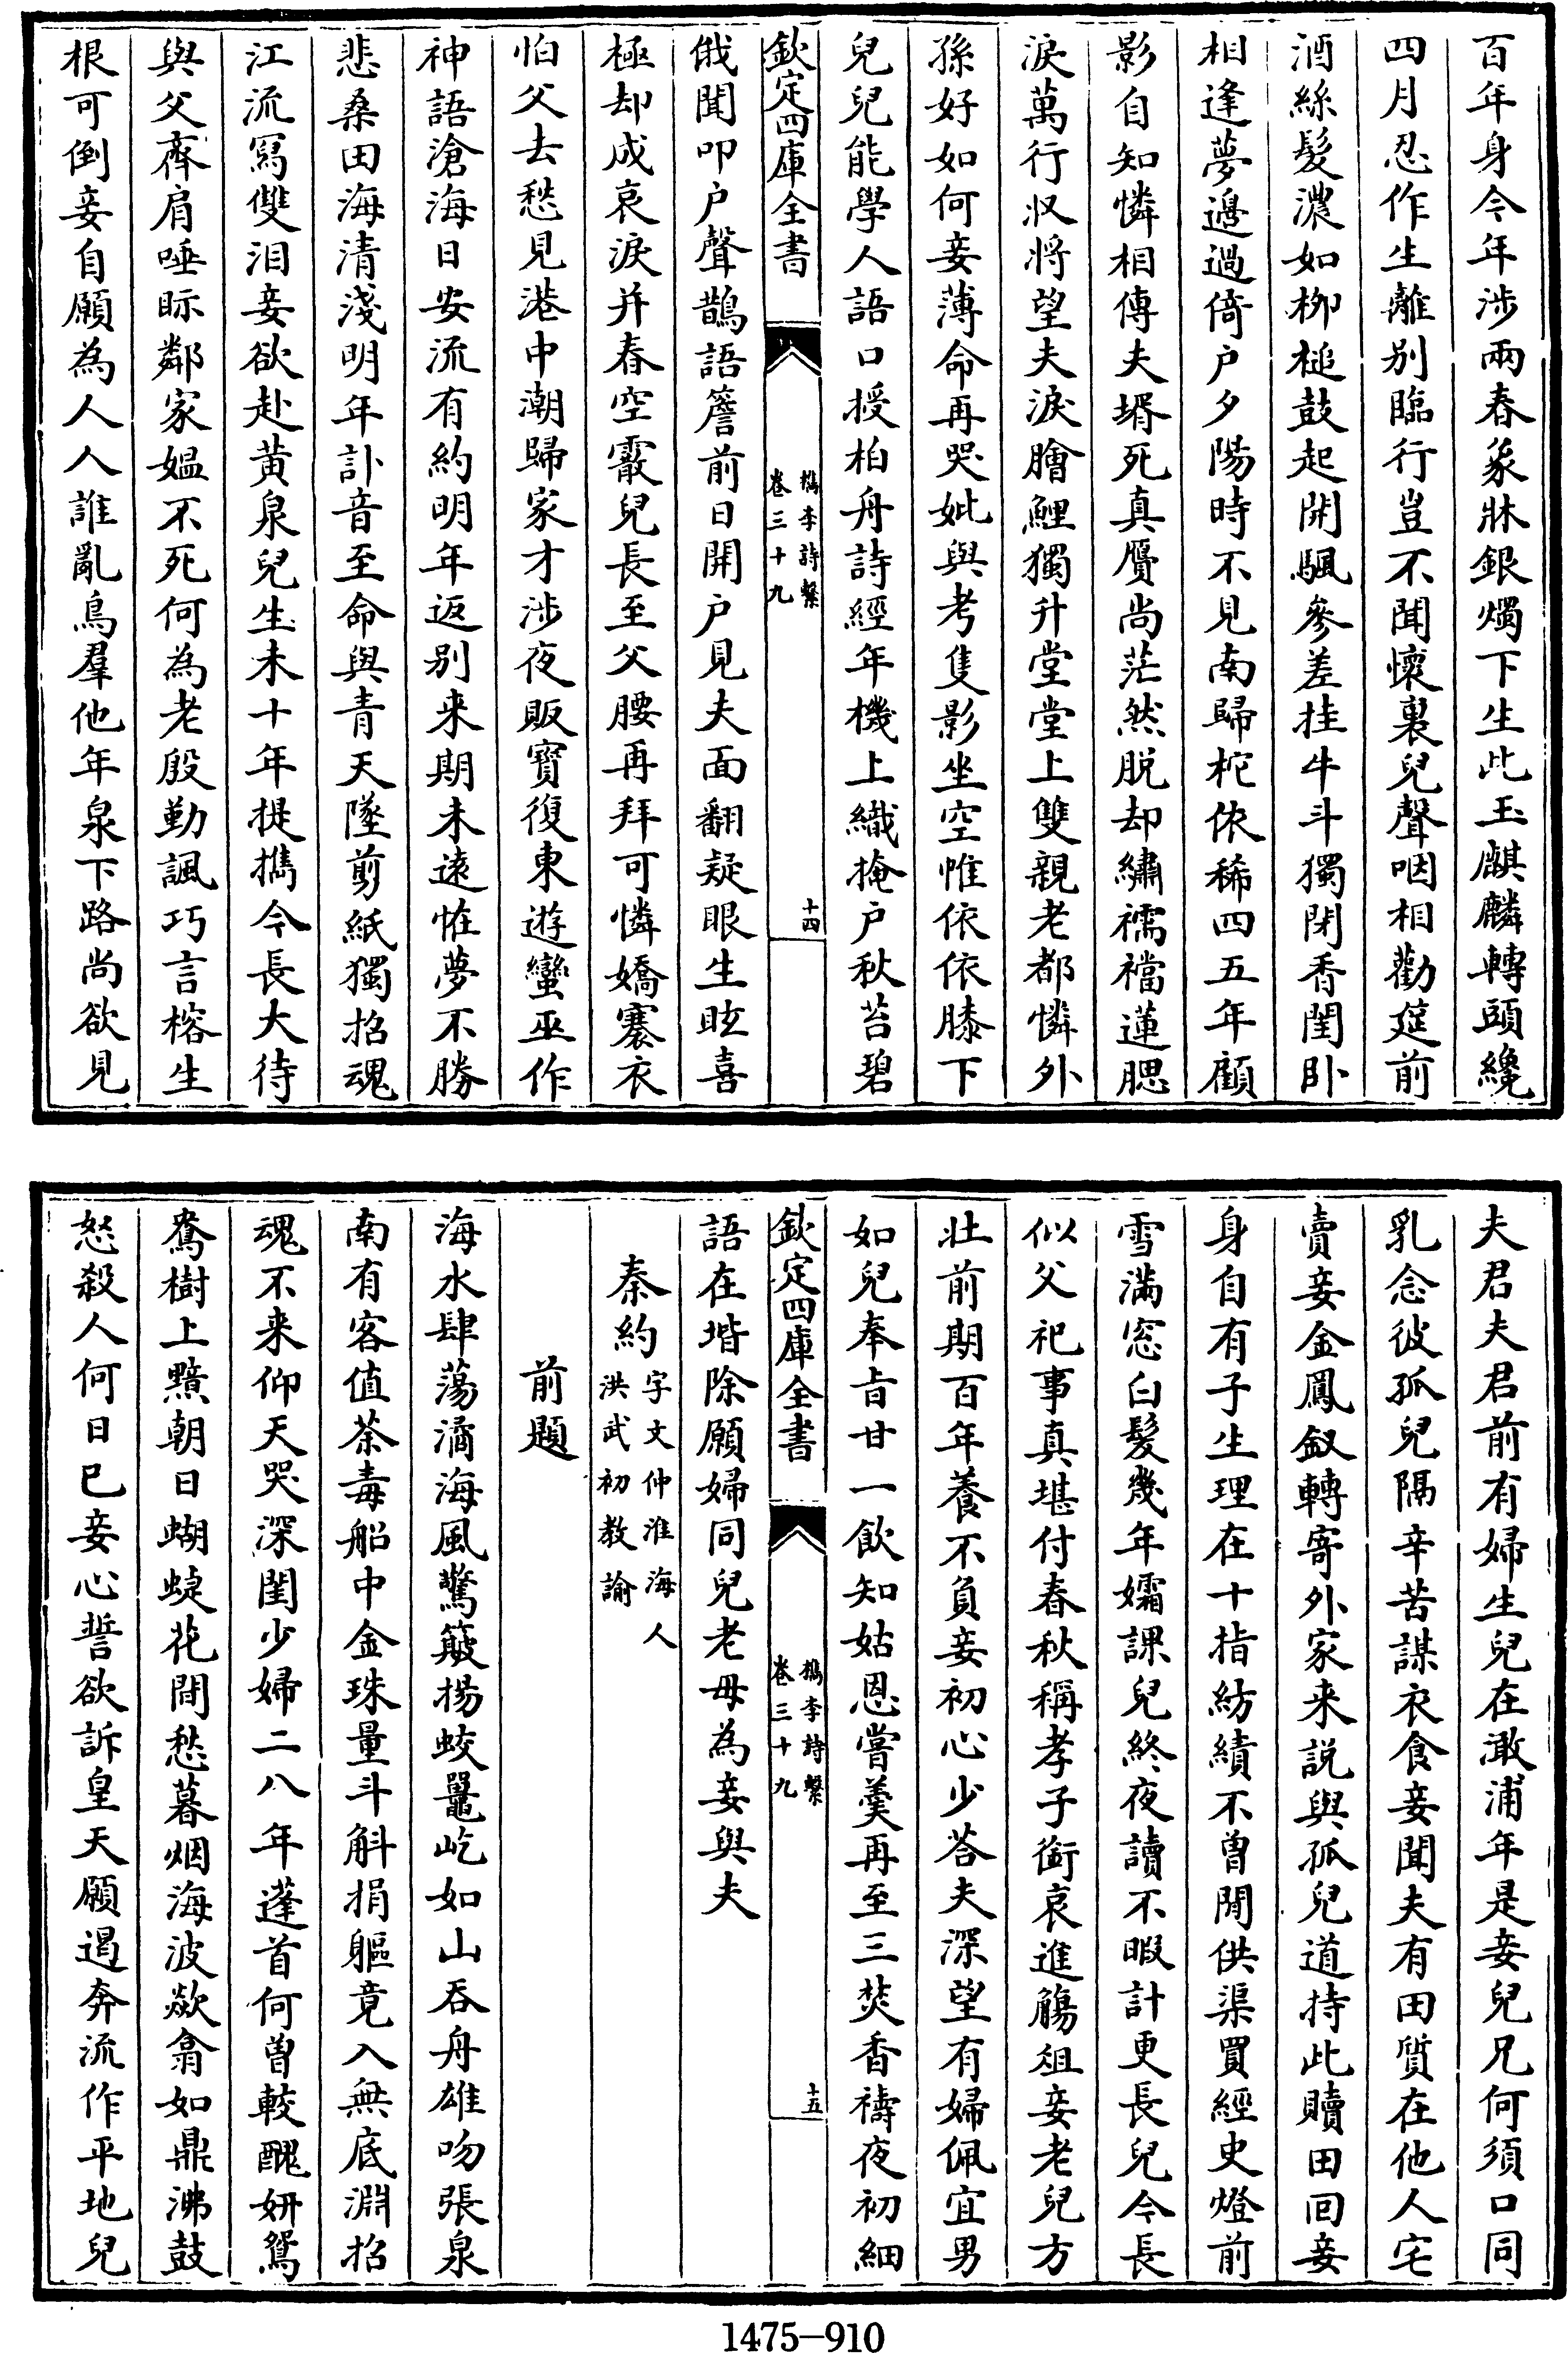 百年身今年涉兩春象牀銀燭下生此玉麒麟轉頭纔
四月忍作生離别臨行豈不聞懷裏兒聲咽相勸筵前
酒絲髮濃如柳槌鼓起開颿參差挂牛斗獨閉香閨卧
相逢夢邊過倚户夕陽時不見南歸柁依稀四五年顧
影自知憐相傳夫壻死真贗尚茫然脱却繡襦襠蓮腮
淚萬行収將望夫淚膾鯉獨升堂堂上雙親老都憐外
孫好如何妾薄命再哭妣與考隻影坐空惟依依膝下
兒兒能學人語口授柏舟詩經年機上織掩户秋苔碧
欽定四庫全書
檇李詩繫
卷三十九
十四
俄聞叩户聲鵲語簷前日開户見夫面翻疑眼生眩喜
極却成哀淚并春空霰兒長至父腰再拜可憐嬌褰衣
怕父去愁見港中潮歸家才涉夜販寳復東遊蠻巫作
神語滄海日安流有約明年返别來期未遠恠夢不勝
悲桑田海清淺明年訃音至命與青天墜剪紙獨招魂
江流寫雙泪妾欲赴黄泉兒生未十年提攜今長大待
與父齊肩唾眎鄰家媪不死何為老殷勤諷巧言榕生
根可倒妾自願為人人誰亂鳥羣他年泉下路尚欲見
夫君夫君前有婦生兒在澉浦年是妾兒兄何須口同
乳念彼孤兒隔辛苦謀衣食妾聞夫有田質在他人宅
賣妾金鳳釵轉寄外家来説與孤兒道持此贖田回妾
身自有子生理在十指紡績不曾閒供渠買經史燈前
雪滿窓白髮幾年孀課兒終夜讀不暇計更長兒今長
似父祀事真堪付春秋稱孝子銜哀進觴俎妾老兒方
壯前期百年養不負妾初心少荅夫深望有婦佩宜男
如兒奉旨甘一飲知姑恩嘗羹再至三焚香禱夜初細
欽定四庫全書
檇李詩繫
卷三十九
十五
語在堦除願婦同兒老毋為妾與夫
秦約字文仲淮海人
洪武初教諭
前題
海水肆蕩潏海風驚簸揚蛟鼉屹如山吞舟雄吻張泉
南有客值荼毒船中金珠量斗斛捐軀竟入無底淵招
魂不来仰天哭深閨少婦二八年蓬首何曽較醜妍鴛
鴦樹上㸃朝日蝴蜨花間愁暮烟海波歘翕如鼎沸鼓
怒殺人何日已妾心誓欲訴皇天願遏奔流作平地兒
1475-910